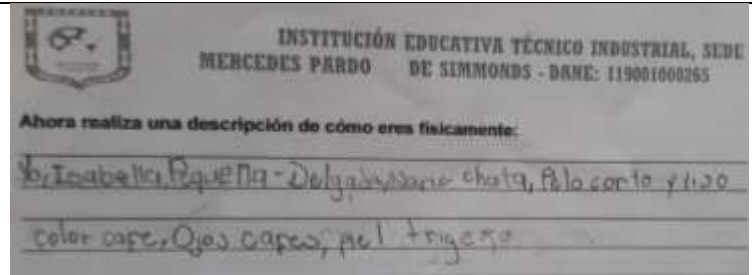 INSTITUCIÓN EDUCATIVA TÉCNICO INDUSTRIAL, SEDE
MERCEDES PARDO DE SIMMONDS - DANE: 119001000265
Ahora realiza una descripción de cómo eres físicamente:
Yo, Isabella, Pequeña - Delgada, Nariz chata, Pelo corto y liso
color cafe, Ojos cafes, piel trigeña